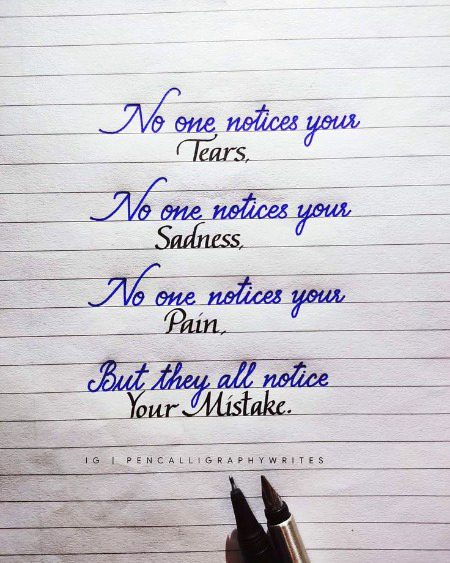 No one notices your
Tears,
No one notices your
Sadness,
No one notices your
Pain,
But they all notice
Your Mistake.
IG | PENCALLIGRAPHYWRITES